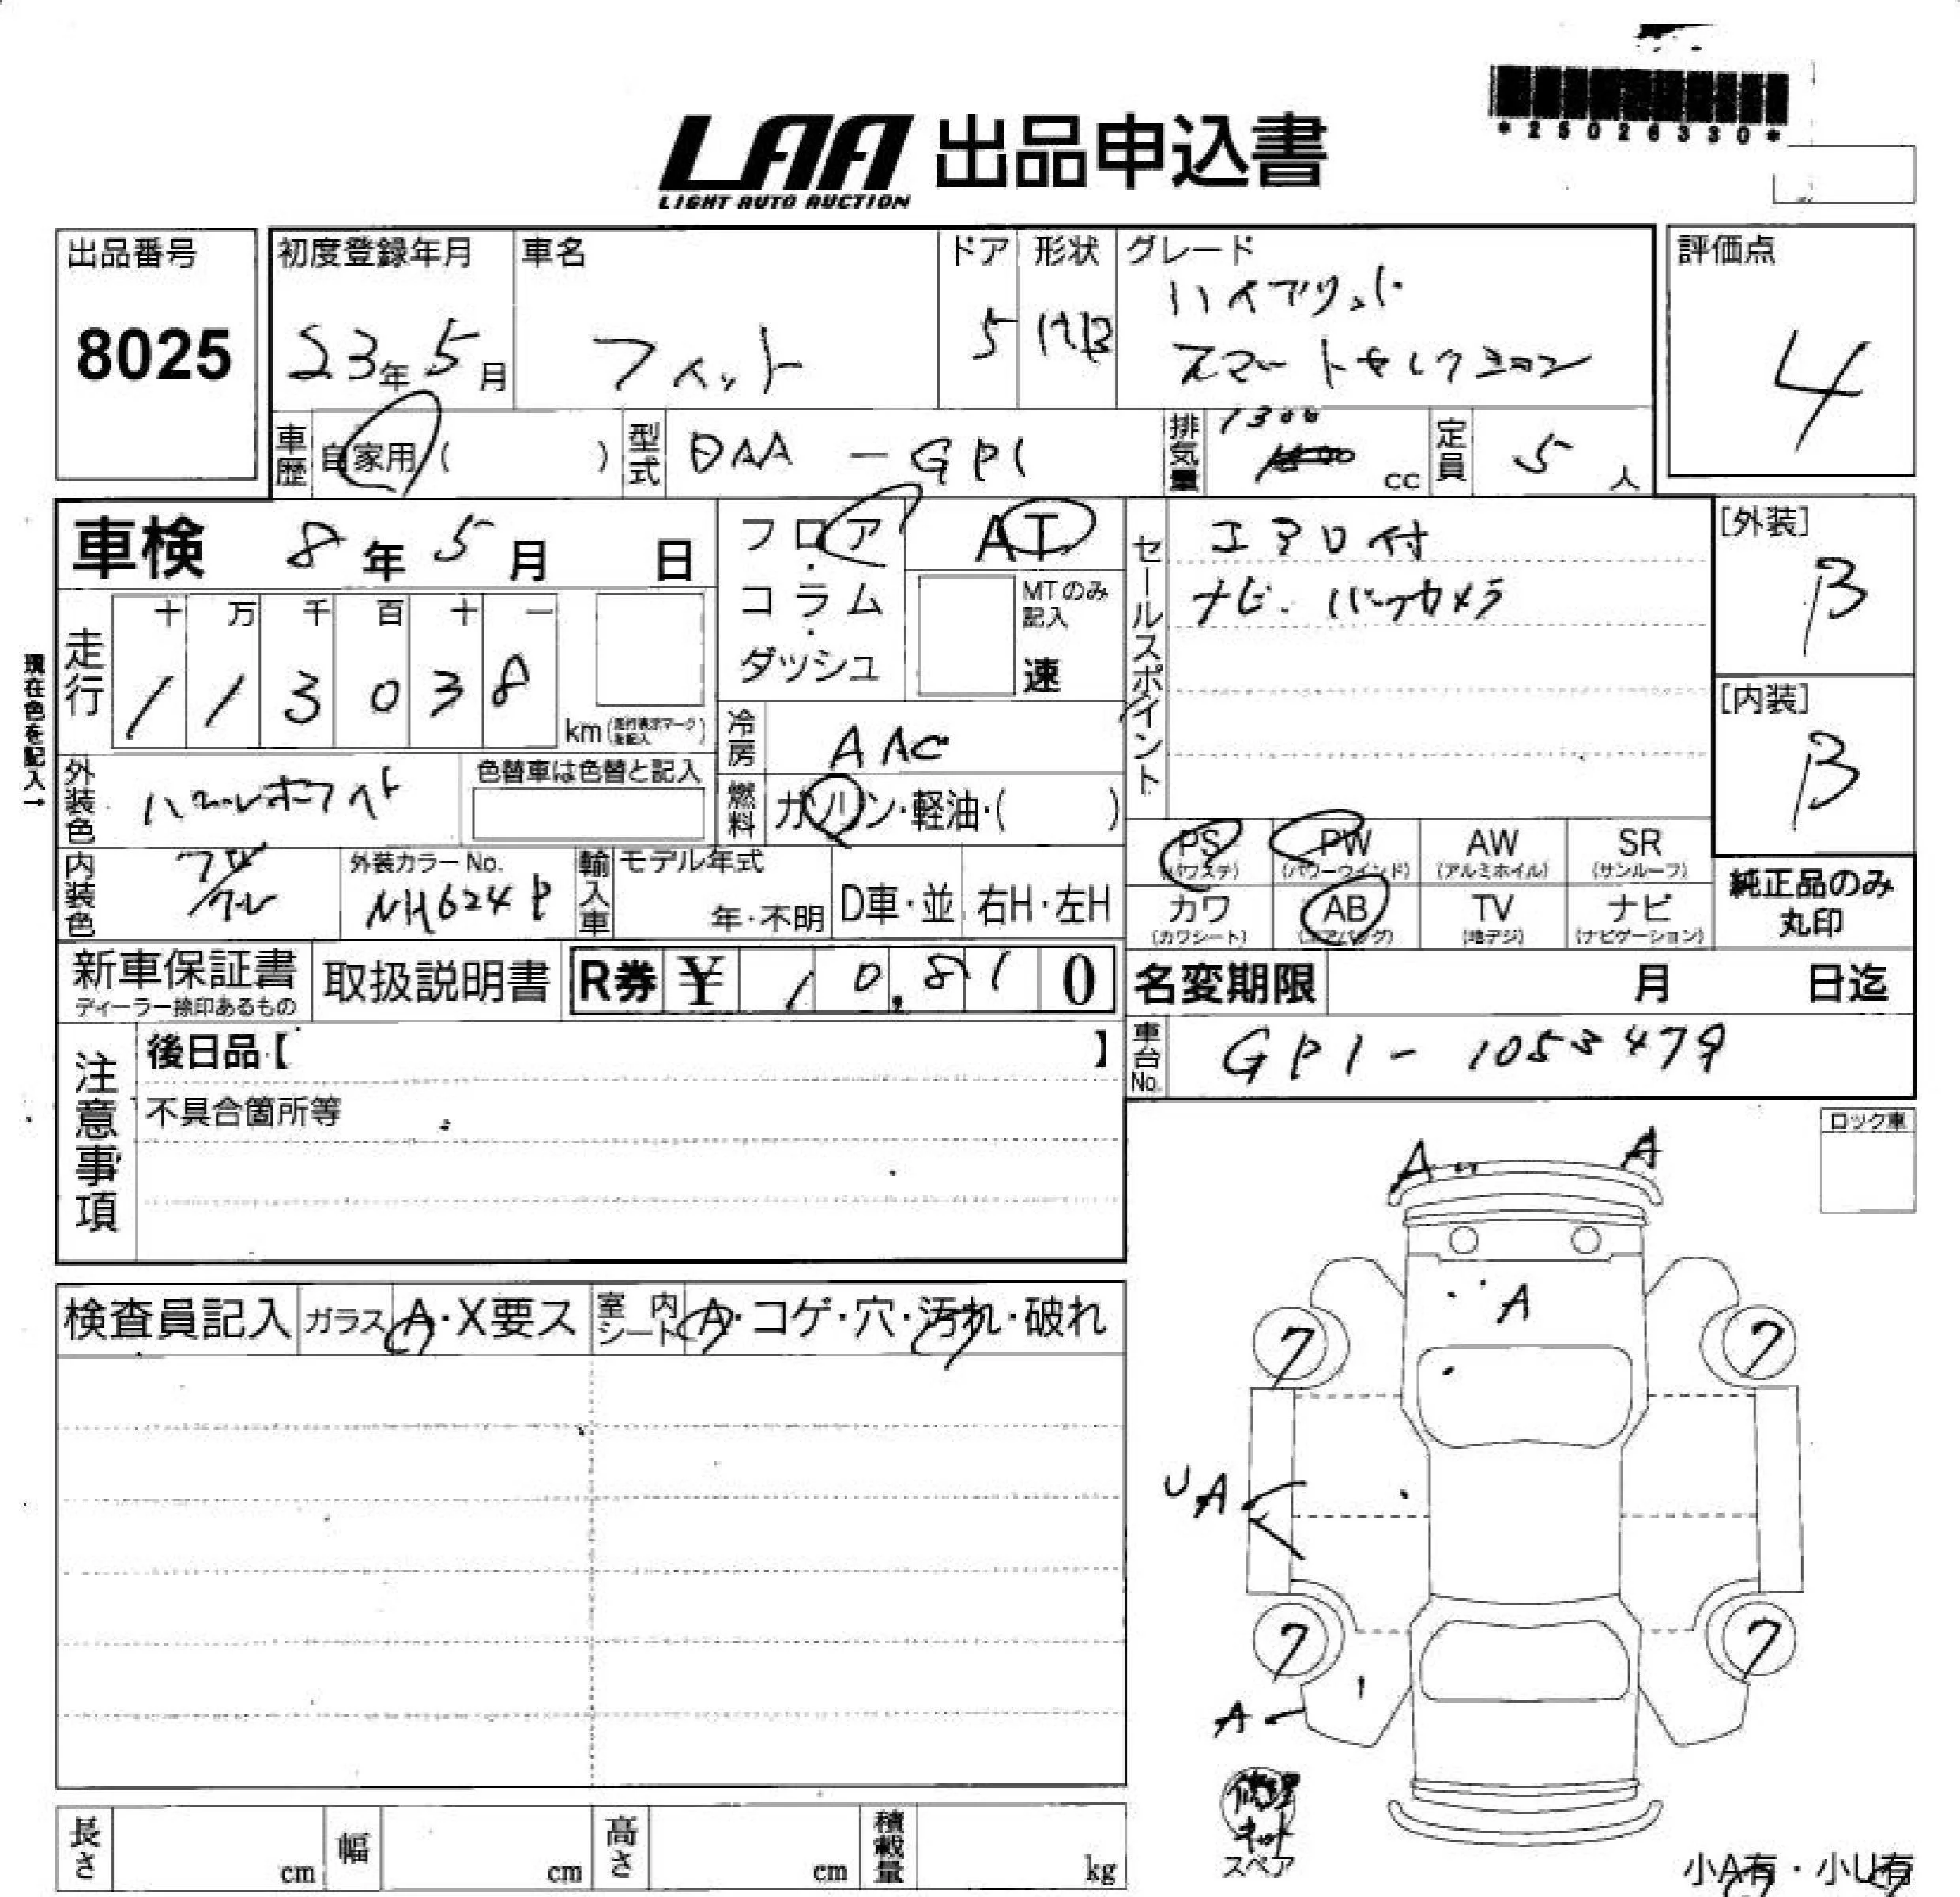 *25026330*
LAA 出品申込書
LIGHT AUTO AUCTION
出品番号
8025
初度登録年月
23年5月
車名
フィット
ドア
5
形状
HB
グレード
ハイブリッド
スマートセレクション
評価点
4
車歴 自家用( )
型式 DAA-GP1
排気量 1300 cc
定員 5 人
車検 8年5月 日
フロア・コラム・ダッシュ
AT
MTのみ記入
速
セールスポイント
エアロ付
ナビ. バックカメラ
[外装]
B
[内装]
B
現在色を記入→
走行
十 万 千 百 十 一
1 1 3 0 3 8
km(走行表示マークを記入)
冷房 AAC
燃料 ガソリン・軽油・( )
外装色 パールホワイト
色替車は色替と記入
内装色
外装カラーNo.
NH624P
輸入車
モデル年式
年・不明
D車・並
右H・左H
PS (パワステ)
PW (パワーウインド)
AW (アルミホイル)
SR (サンルーフ)
カワ (カワシート)
AB (エアバッグ)
TV (地デジ)
ナビ (ナビゲーション)
純正品のみ
丸印
新車保証書
ディーラー捺印あるもの
取扱説明書
R券 ¥ 10,810
名変期限 月 日迄
車台No. GP1-1053479
注意事項
後日品【 】
不具合箇所等
ロック車
検査員記入
ガラス A・X要ス
室内シート A・コゲ・穴・汚れ・破れ
A A
A
7 7
UA
7 7
A
修理
キット
スペア
長さ cm
幅 cm
高さ cm
積載量 kg
小A有・小U有